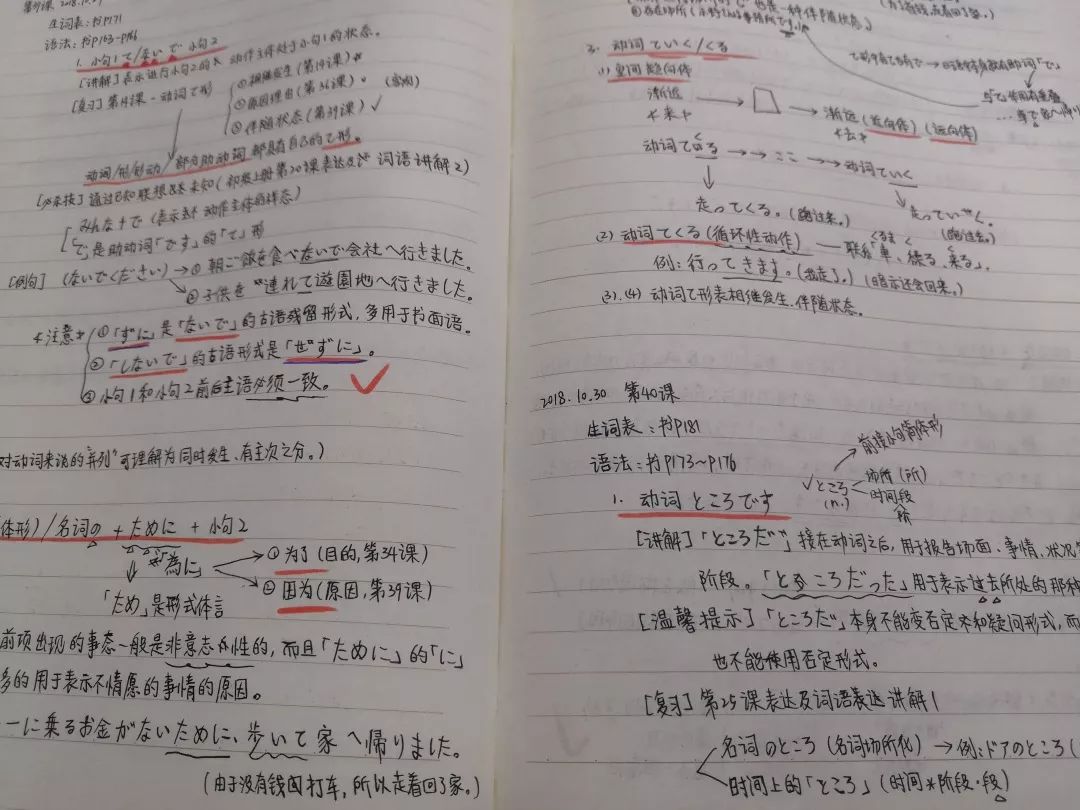 第39课 2018.10.29
生词表：书P171
语法：书P163~P166
1. 小句1て/ないで 小句2
[讲解] 表示进行小句2的 动作主体处于小句1的状态。
[复习] 第14课 - 动词て形
① 相继发生 (第14课)
② 原因理由 (第36课) (客观)
③ 伴随状态 (第39课) ✓
动词/形/形动/部分助动词 都具有自己的て形。
通过已知联想未知 (初级上册第20课表达及词语讲解2)
みんな+で (表示动作主体的样态)
で是助动词「です」的「て」形
[例句] (ないでください) → ① 朝ご飯を食べないで会社へ行きました。
② 子供を連れて遊園地へ行きました。
*注意*
① 「ずに」是「ないで」的古语残留形式，多用于书面语。
② 「しないで」的古语形式是「せずに」。
③ 小句1和小句2前后主语必须一致。
对动词来说的"并列"可理解为同时发生、有主次之分。)
体形)/名词の+ために+小句2
"為に"
① 为了 (目的,第34课)
② 因为 (原因,第39课)
「ため」是形式体言
前项出现的事态一般是非意志性的，而且「ために」的「に」
多的用于表示不情愿的事情的原因。
ーに乗るお金がないために、歩いて家へ帰りました。
(由于没有钱打车，所以走着回了家。)
3. 动词ていく/くる
(1) 空间趋向体
渐近 → → 渐远 (近向体) (远向体)
*来* *去*
动词てくる →→ ここ →→ 动词ていく
走ってくる。(跑过来。) 走っていく。(跑过去。)
(2) 动词てくる (循环性动作) — 联系「車、繰る、来る」。
例：行ってきます。(我走了。) (暗示还会回来。)
(3).(4) 动词て形表相继发生.伴随状态.
2018.10.30 第40课
生词表：书P181
语法：书P173~P176
前接小句简体形
✓ところ (n.)
场所 (所)
时间段
阶
1. 动词 ところです
[讲解] 「ところだ」接在动词之后，用于报告场面、事情、状况
阶段。「ところだった」用于表示过去所处的那种
[温馨提示] 「ところだ」本身不能变否定和疑问形式，而
也不能使用否定形式。
[复习] 第25课表达及词语讲解1
名词のところ (名词场所化) → 例：ドアのところ (
时间上的「ところ」 (时间*阶段·段)